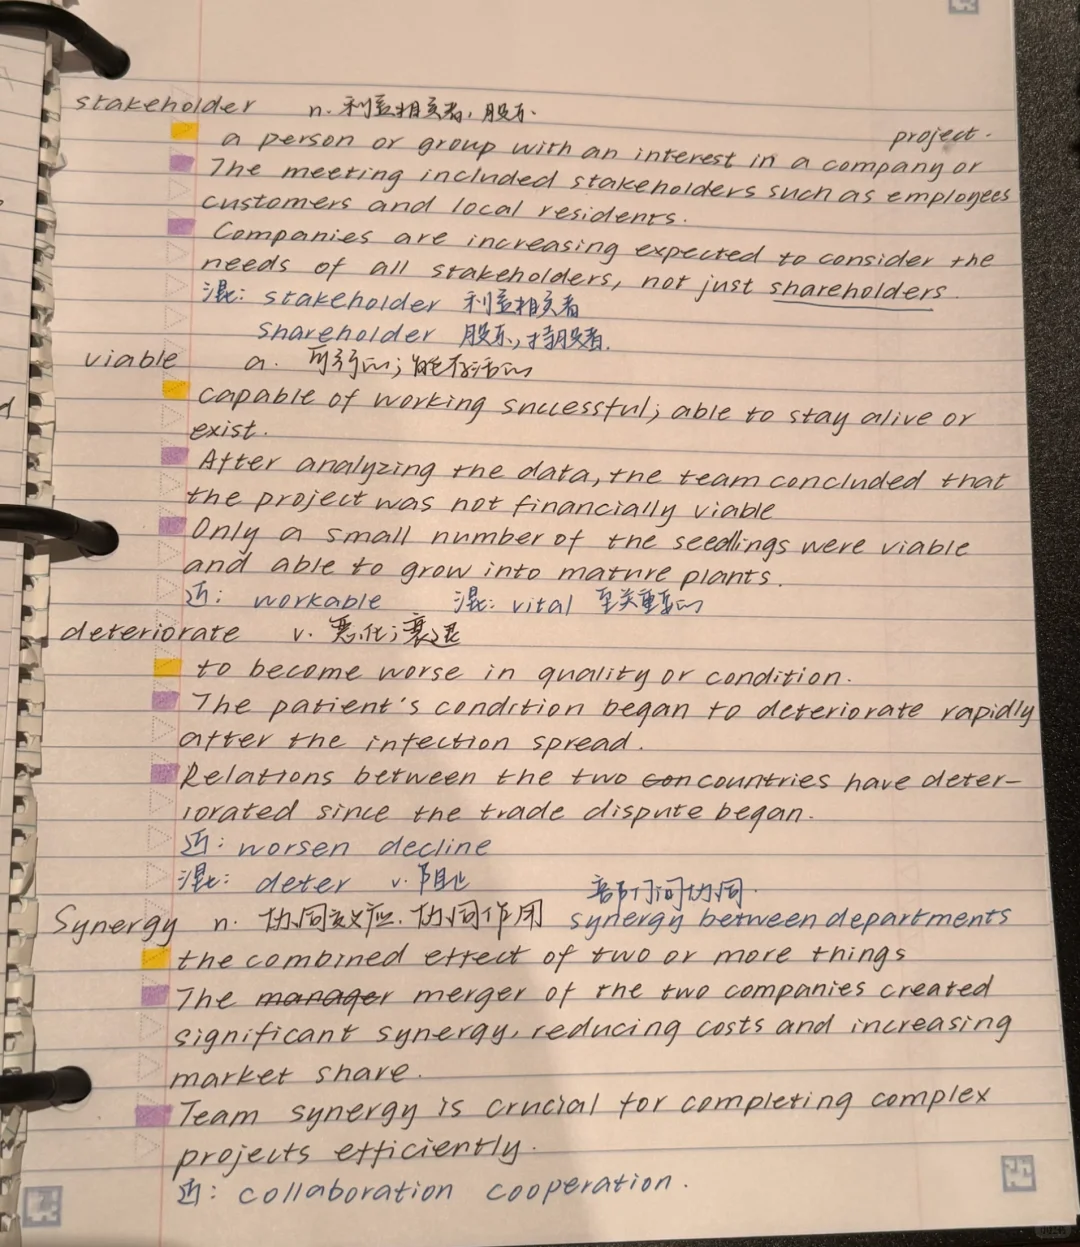 stakeholder n. 利益相关者, 股东.
project.
a person or group with an interest in a company or
The meeting included stakeholders such as employees
customers and local residents.
Companies are increasing expected to consider the
needs of all stakeholders, not just shareholders.
混: stakeholder 利益相关者
shareholder 股东, 持股者.
viable a. 可行的; 能存活的
capable of working successful; able to stay alive or
exist.
After analyzing the data, the team concluded that
the project was not financially viable
Only a small number of the seedlings were viable
and able to grow into mature plants.
近: workable 混: vital 至关重要的
deteriorate v. 恶化; 衰退
to become worse in quality or condition.
The patient's condition began to deteriorate rapidly
after the infection spread.
Relations between the two con countries have deter-
iorated since the trade dispute began.
近: worsen decline
混: deter v. 阻止
部门间协同.
Synergy n. 协同效应. 协同作用 synergy between departments
the combined effect of two or more things
The manager merger of the two companies created
significant synergy, reducing costs and increasing
market share.
Team synergy is crucial for completing complex
projects efficiently.
近: collaboration cooperation.